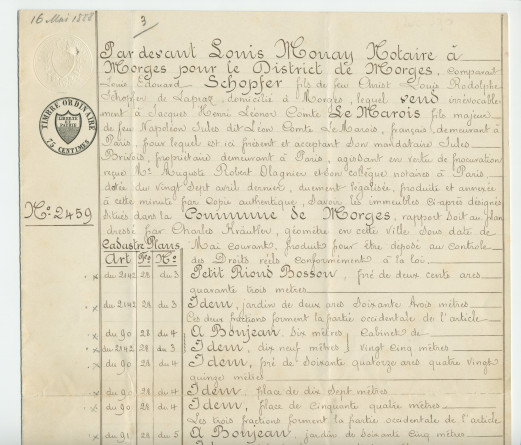 16 Mai 1888
3
TIMBRE ORDINAIRE
LIBERTÉ ET PATRIE
75 CENTIMES
Nº 2459
Par devant Louis Monay Notaire à
Morges pour le District de Morges, comparaît
Louis Edouard Schopfer fils de feu Christ Louis Rodolphe
Schopfer de Lapraz, domicilié à Morges, lequel vend irrévocable-
ment à Jacques Henri Léonor Comte Le Marois fils majeur
de feu Napoléon Jules dit Léon Comte Le Marois, français, demeurant à
Paris, pour lequel est ici présent et acceptant son mandataire Jules
propriétaire demeurant à Paris, agissant en vertu de procuration
reçue Me Auguste Robert et son collègue notaires à Paris,
datée du vingt Sept avril dernier, duement légalisée, produite et annexée
à cette minute par Copie authentique, Savoir les immeubles Ci-après désignés
Situés dans la Commune de Morges, rapport Soit au plan
dressé par Charles Kräutler, géomètre en cette Ville Sous date de
Mai courant, produits pour être déposé au contrôle
des Droits réels conformément à la loi.
Cadastre Plans
Art Fº Nº
du 2142 28 du 3 Petit Riond Bosson, pré de deux cents ares
quarante trois mètres
du 2142 28 du 3 Idem, jardin de deux ares Soixante trois mètres
Ces deux fractions forment la partie occidentale de l'article
du 90 28 du 4 A Bonjean Six mètres } Cabinet de
du 2142 28 du 3 Idem, dix neuf mètres } Vingt Cinq mètres
du 90 28 du 4 Idem, pré de Soixante quatorze ares quatre vingt
quinze mètres
du 90 28 du 4 Idem, place de dix Sept mètres
du 90 28 du 4 Idem, place de Cinquante quatre mètres
Les trois fractions forment la partie occidentale de l'article
du 91 28 du 5 A Bonjean, jardin de Soixante Cinq mètres